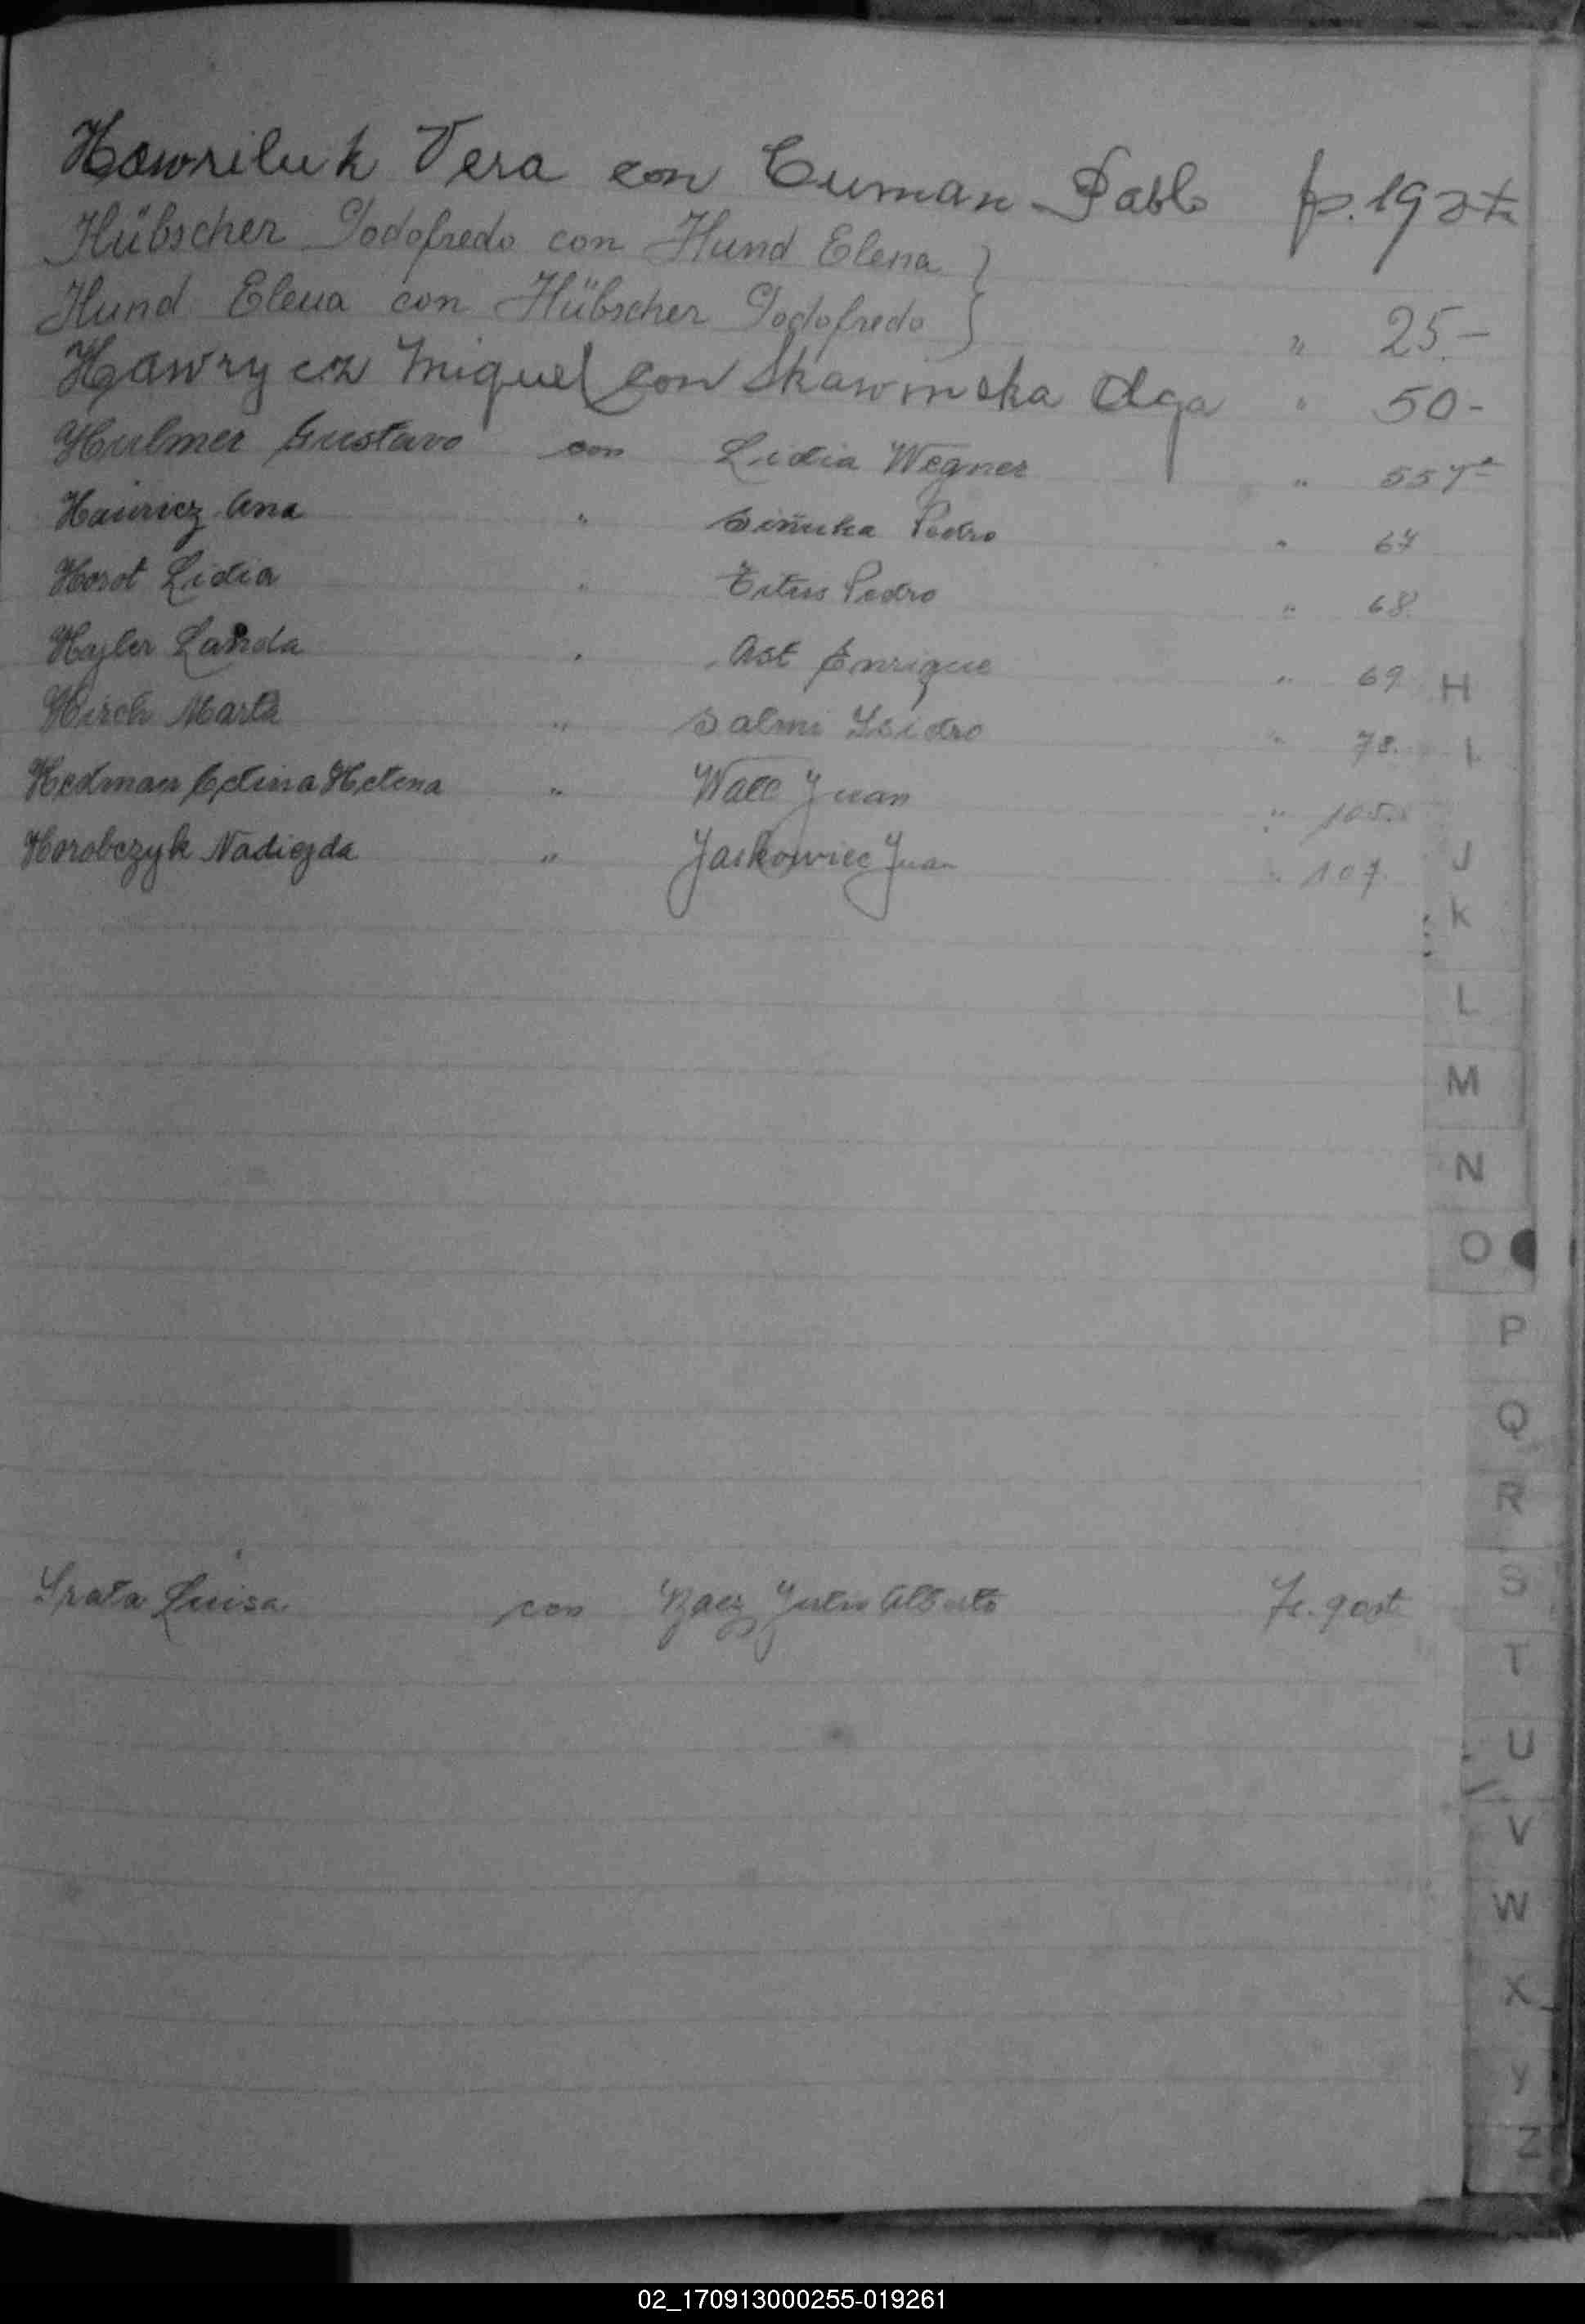 Hawriluk Vera con Cuman Pablo fo. 19
Hübscher Godofredo con Hund Elena }
Hund Elena con Hübscher Godofredo } " 25.-
Hawrycz Miguel con Skawinska Olga " 50-
Hulmer Gustavo con Lidia Wegner " 55
Hawricz Ana " Pedro " 67
Horot Lidia " Titus Pedro " 68.
Hajler Landa " Ast Enrique " 69
Hirch Marta " Salmi Isidro " 78.
Hedman Helena " Juan " 105.
Horobczyk Nadiezda " Jaskowiec Juan " 107.
Luisa con Baez Julio Alberto
H
I
J
K
L
M
N
O
P
Q
R
S
T
U
V
W
X
Y
Z
02_170913000255-019261